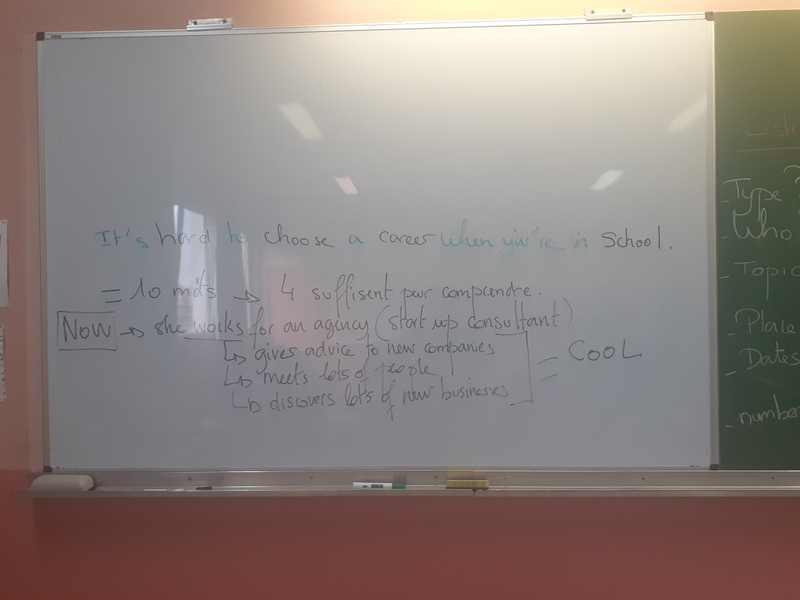 It's hard to choose a career when you're in school.
= 10 mots → 4 suffisent pour comprendre.
NOW → she works for an agency (start up consultant)
↳ gives advice to new companies
↳ meets lots of people
↳ discovers lots of new businesses
= COOL
Liste
- Type ?
- Who
- Topic
- Place
- Dates
- number